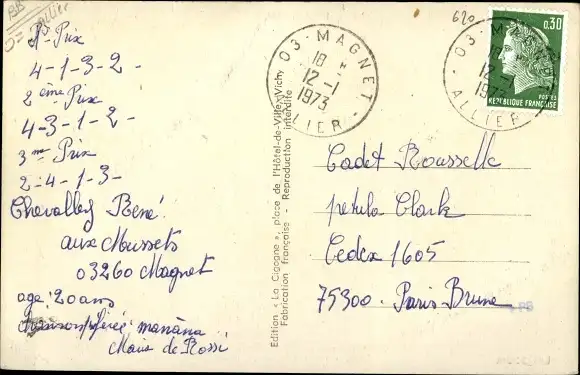 03 allier
1er Prix
4-1-3-2-
2ème Prix
4-3-1-2-
3me Prix
2-4-1-3-
Chevalley René
aux Mussets
03260 Magnet
age: 20 ans
chanson préférée: manana
Marie de Rossi
Edition « La Cigogne », place de l'Hôtel-de-Ville, Vichy
Fabrication française - Reproduction interdite
03 - MAGNET -
18 H
12-1
1973
ALLIER
620
03 - MAGNET
18 H
12-1
1973
ALLIER
0.30
POSTES
REPUBLIQUE FRANÇAISE
Cadet Rousselle
petula Clark
Cedex 1605
75300. Paris Brune